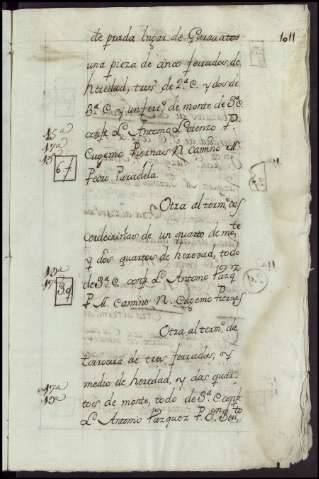 de prada lugar de Gervatos
1011
una pieza de cinco ferrados, de
heredad, tres de 2ª C. y dos de
3ª C. y un ferdº de monte de 3ª C
conf. L. Antonio Lorenzo P.
Eugenio Piernas N. camino M.
Pedro Paradela
15ª
17ª
15ª
67
Otra al termº das
cordeiriñas de un quarto de mo,te
y dos quartos de heredad, todo
de 3ª C. conf. L. Antonio Vazqz
P. M. Camino N. Eugenio Piernas
15ª
17ª
39
Otra al termº da
tarroeira de tres ferrados, y
medio de heredad, y dos quar-
tos de monte, todo de 3ª C. conf
L. Antonio Vazquez P.
17ª
15ª